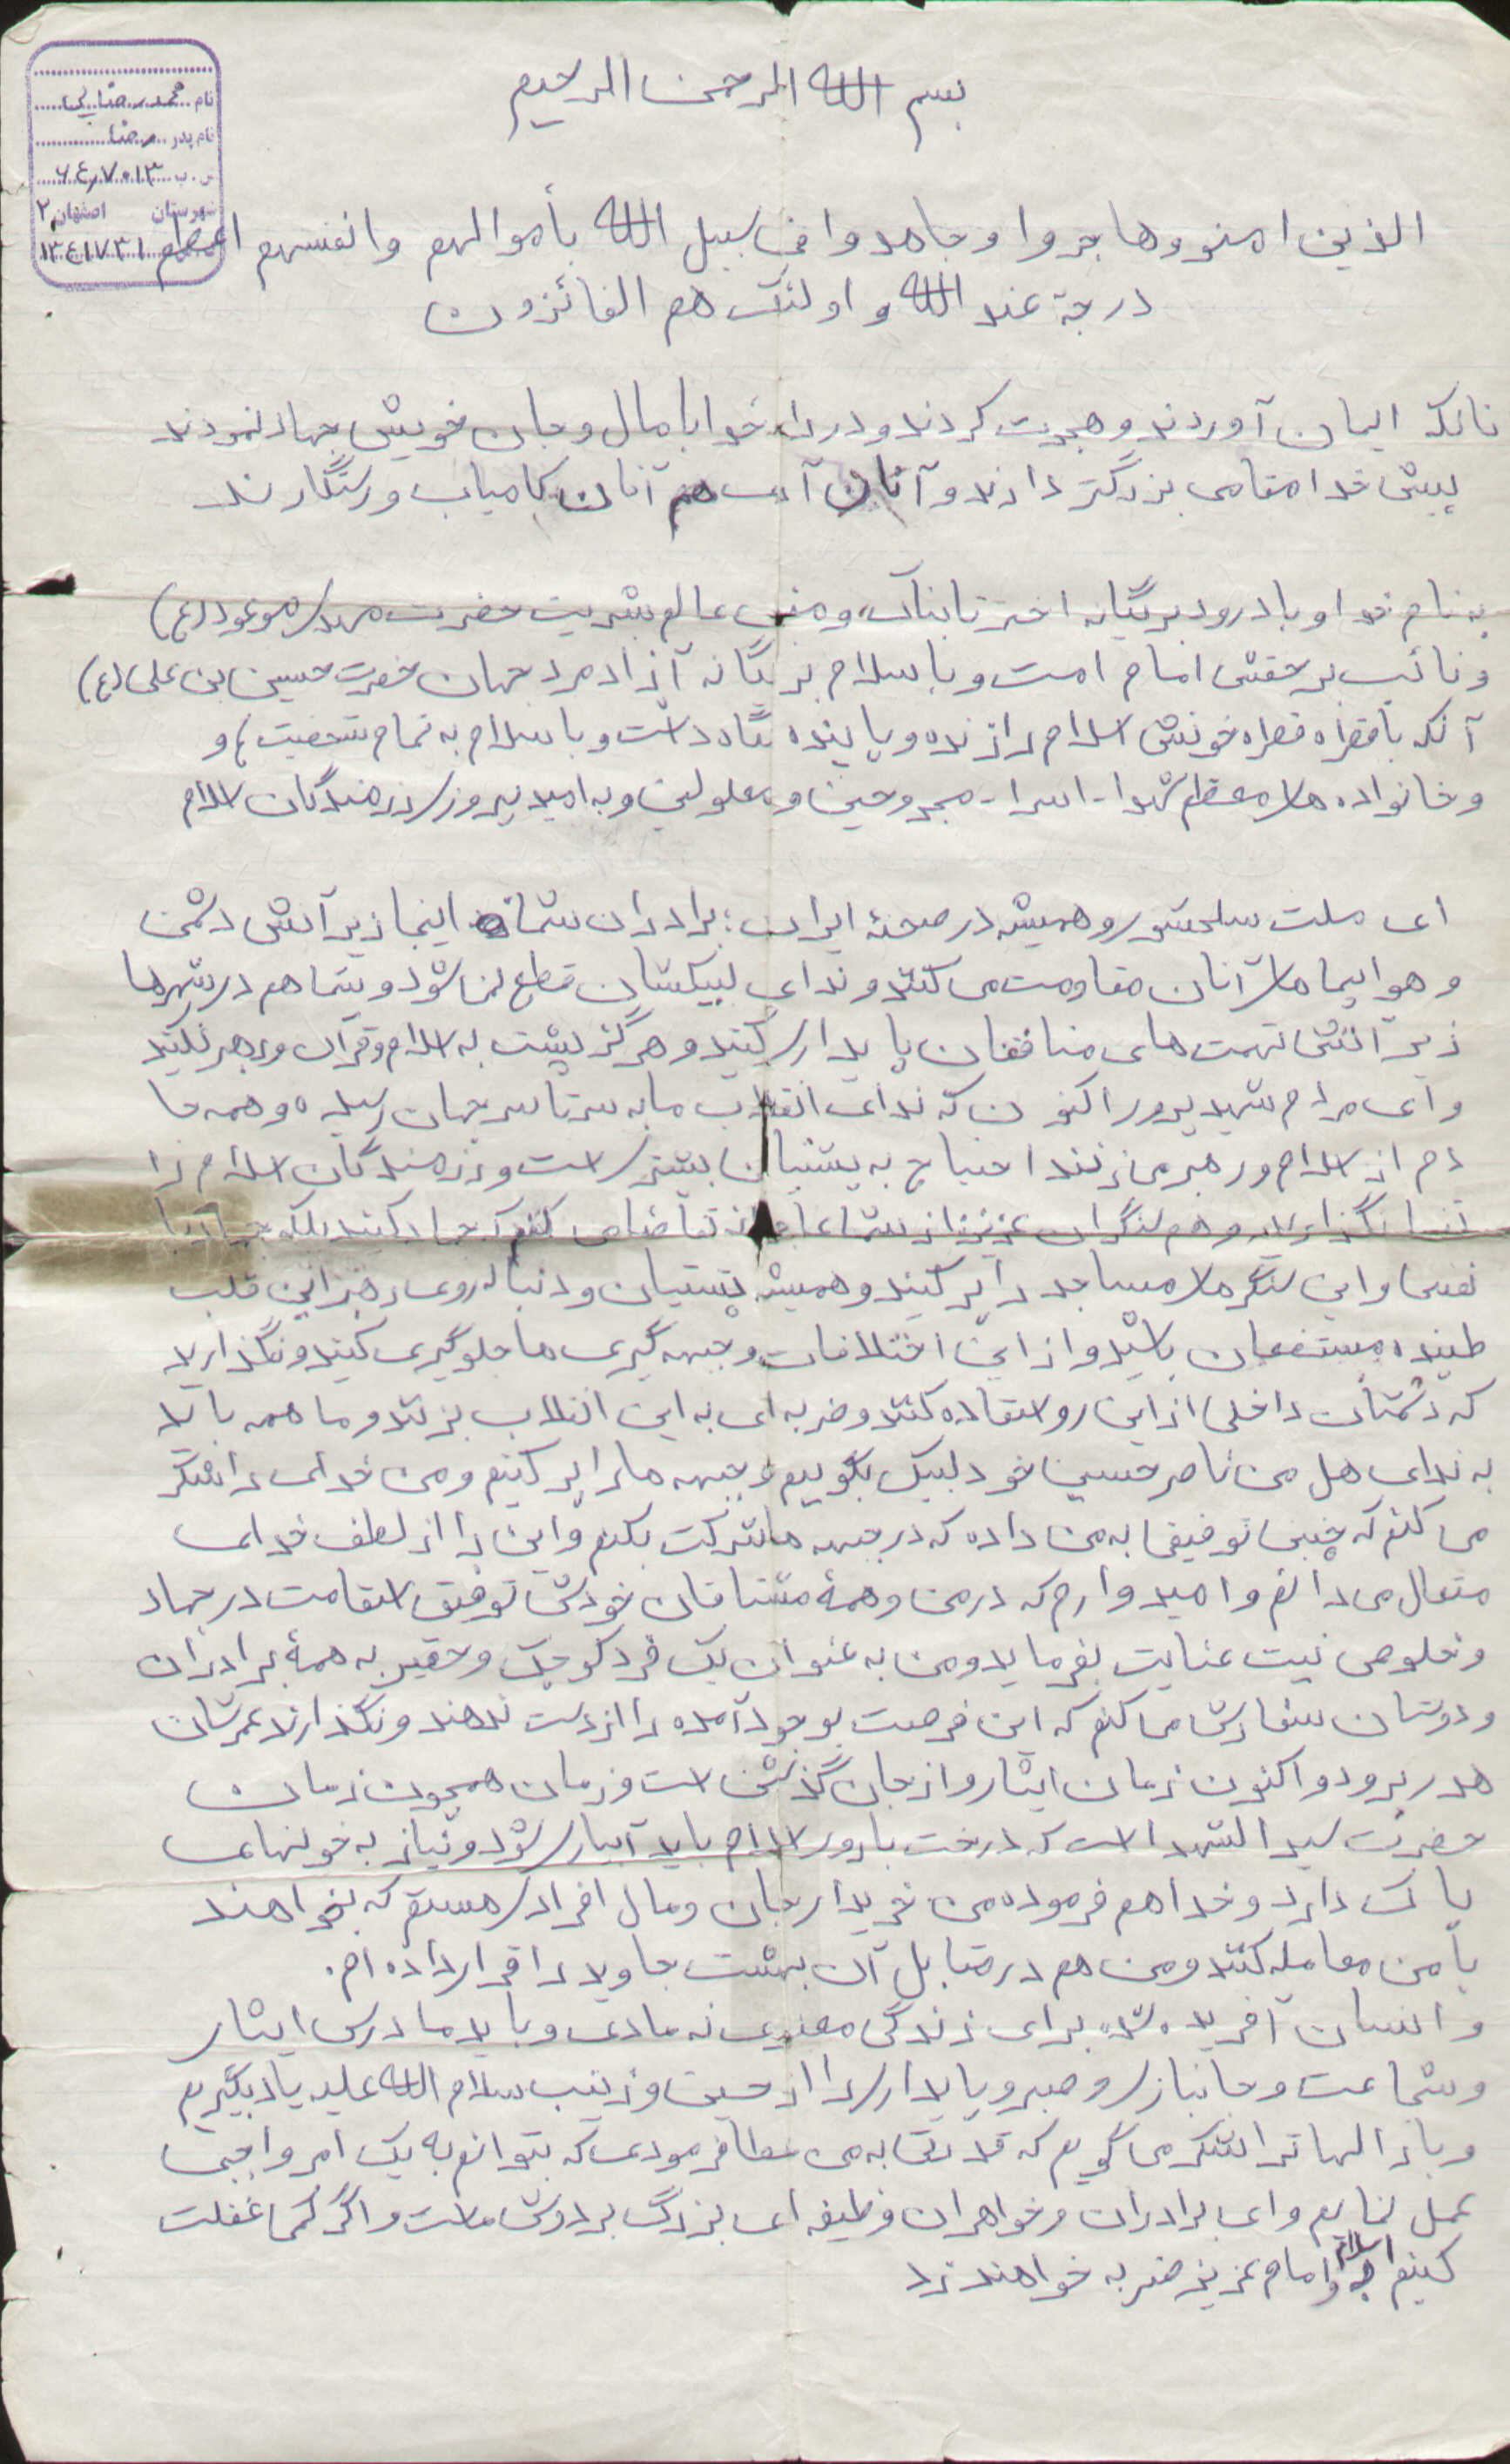 بسم الله الرحمن الرحیم
نام محمد رضایی
نام پدر رضا
ش.ب ۶۴٫۷۰۱۳
شهرستان اصفهان ۲
۱۳۴۱۷۳۱
الذین امنو وهاجروا وجاهدوا فی سبیل الله بأموالهم وانفسهم اعظم
درجة عند الله و اولئک هم الفائزون
نانکه ایمان آوردند و هجرت کردند و در راه خدا با مال و جان خویش جهاد نمودند
پیش خدا مقامی بزرگتر دارند و آنان هم آنان کامیاب و رستگارند
به نام خدا و با درود بر یگانه اختر تابناک و منجی عالم بشریت حضرت مهدی موعود (ع)
و نائب بر حقش امام امت و با سلام بر یگانه آزاد مرد جهان حضرت حسین بن علی (ع)
آنکه با قطره قطره خونش اسلام را زنده و پاینده نگاه داشت و با سلام به تمام شخصیت ها و
و خانواده های معظم شهدا - اسرا - مجروحین و معلولین و به امید پیروزی رزمندگان اسلام
ای ملت سلحشور و همیشه در صحنهٔ ایران: برادران شما اینجا زیر آتش دشمن
و هواپیماهای آنان مقاومت می کنند و ندای لبیکشان قطع نمی شود و شما هم در شهرها
زیر آتش تهمت های منافقان پایداری کنید و هرگز پشت به اسلام و قرآن و رهبر نکنید
و ای مردم شهید پرور اکنون که ندای انقلاب ما به سرتاسر جهان رسیده و همه جا
دم از اسلام و رهبر می زنند احتیاج به پشتیبانی بیشتری است و رزمندگان اسلام را
تنها نگذارید و هم سنگران عزیز از شما عاجزانه تقاضا می کنم که جهاد کنید بلکه جهاد با
نفس و این سنگرهای مساجد را پر کنید و همیشه پشتیبان و دنباله روی رهبر این قلب
طپنده مستضعفان باشید و از این اختلافات و جبهه گیری ها جلوگیری کنید و نگذارید
که دشمنان داخلی از این رو استفاده کنند و ضربه ای به این انقلاب بزنند و ما همه باید
به ندای هل من ناصر حسین خود لبیک بگوییم و جبهه ها را پر کنیم و من خدای را شکر
می کنم که چنین توفیقی به من داده که در جبهه ها شرکت بکنم و این را از لطف خدای
متعال می دانم و امیدوارم که در من و همهٔ مشتاقان خودش توفیق استقامت در جهاد
و خلوص نیت عنایت بفرماید و من به عنوان یک فرد کوچک و حقیر به همهٔ برادران
و دوستان سفارش می کنم که این فرصت بوجود آمده را از دست ندهند و نگذارند عمرشان
هدر برود و اکنون زمان ایثار و از جان گذشتن است و زمان همچون زمان
حضرت سید الشهدا است که درخت بارور اسلام باید آبیاری شود و نیاز به خونهای
پاک دارد و خدا هم فرموده من خریدار جان و مال افرادی هستم که بخواهند
با من معامله کنند و من هم در مقابل آن بهشت جاوید را قرار داده ام.
و انسان آفریده شده برای زندگی معنوی نه مادی و باید ما درس ایثار
و شجاعت و جانبازی و صبر و پایداری را از حسین و زینب سلام الله علیه یاد بگیریم
و بار الها ترا تشکر می گویم که قدرتی به من عطا فرمودی که بتوانم به یک امر واجبی
عمل نمایم و ای برادران و خواهران وظیفه ای بزرگ بر دوش ماست و اگر کمی غفلت
کنیم به اسلام و امام عزیز ضربه خواهند زد